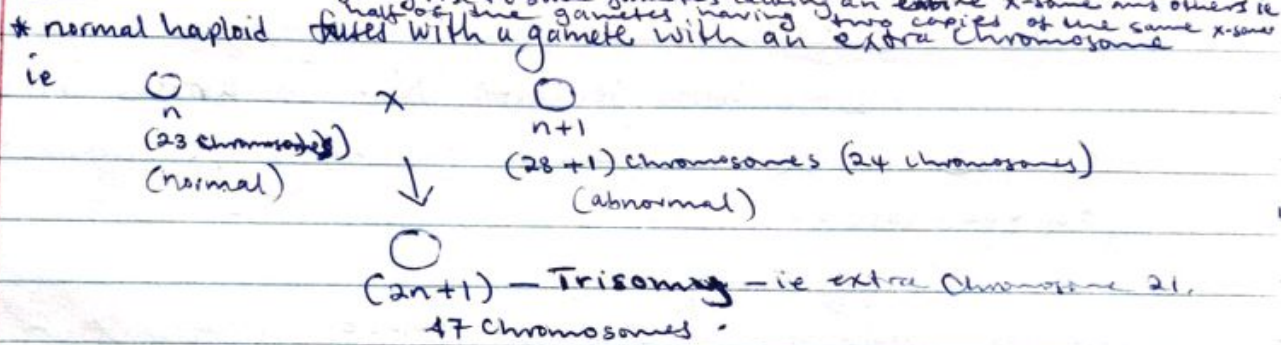 half of the gametes having two copies of the same x-some
* normal haploid fuses with a gamete with an extra chromosome
ie
n x n+1
(23 chromosomes) (28+1) chromosomes (24 chromosomes)
(normal) (abnormal)
(2n+1) – Trisomy – ie extra Chromosome 21.
47 Chromosomes.